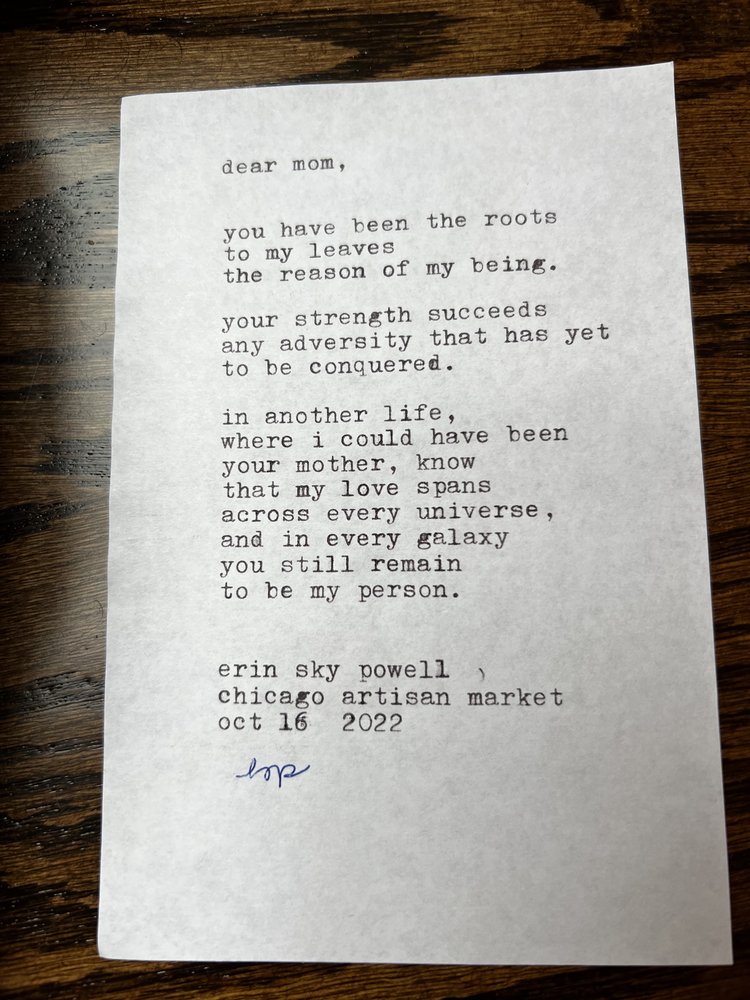 dear mom,
you have been the roots
to my leaves
the reason of my being.
your strength succeeds
any adversity that has yet
to be conquered.
in another life,
where i could have been
your mother, know
that my love spans
across every universe,
and in every galaxy
you still remain
to be my person.
erin sky powell
chicago artisan market
oct 16 2022
esp